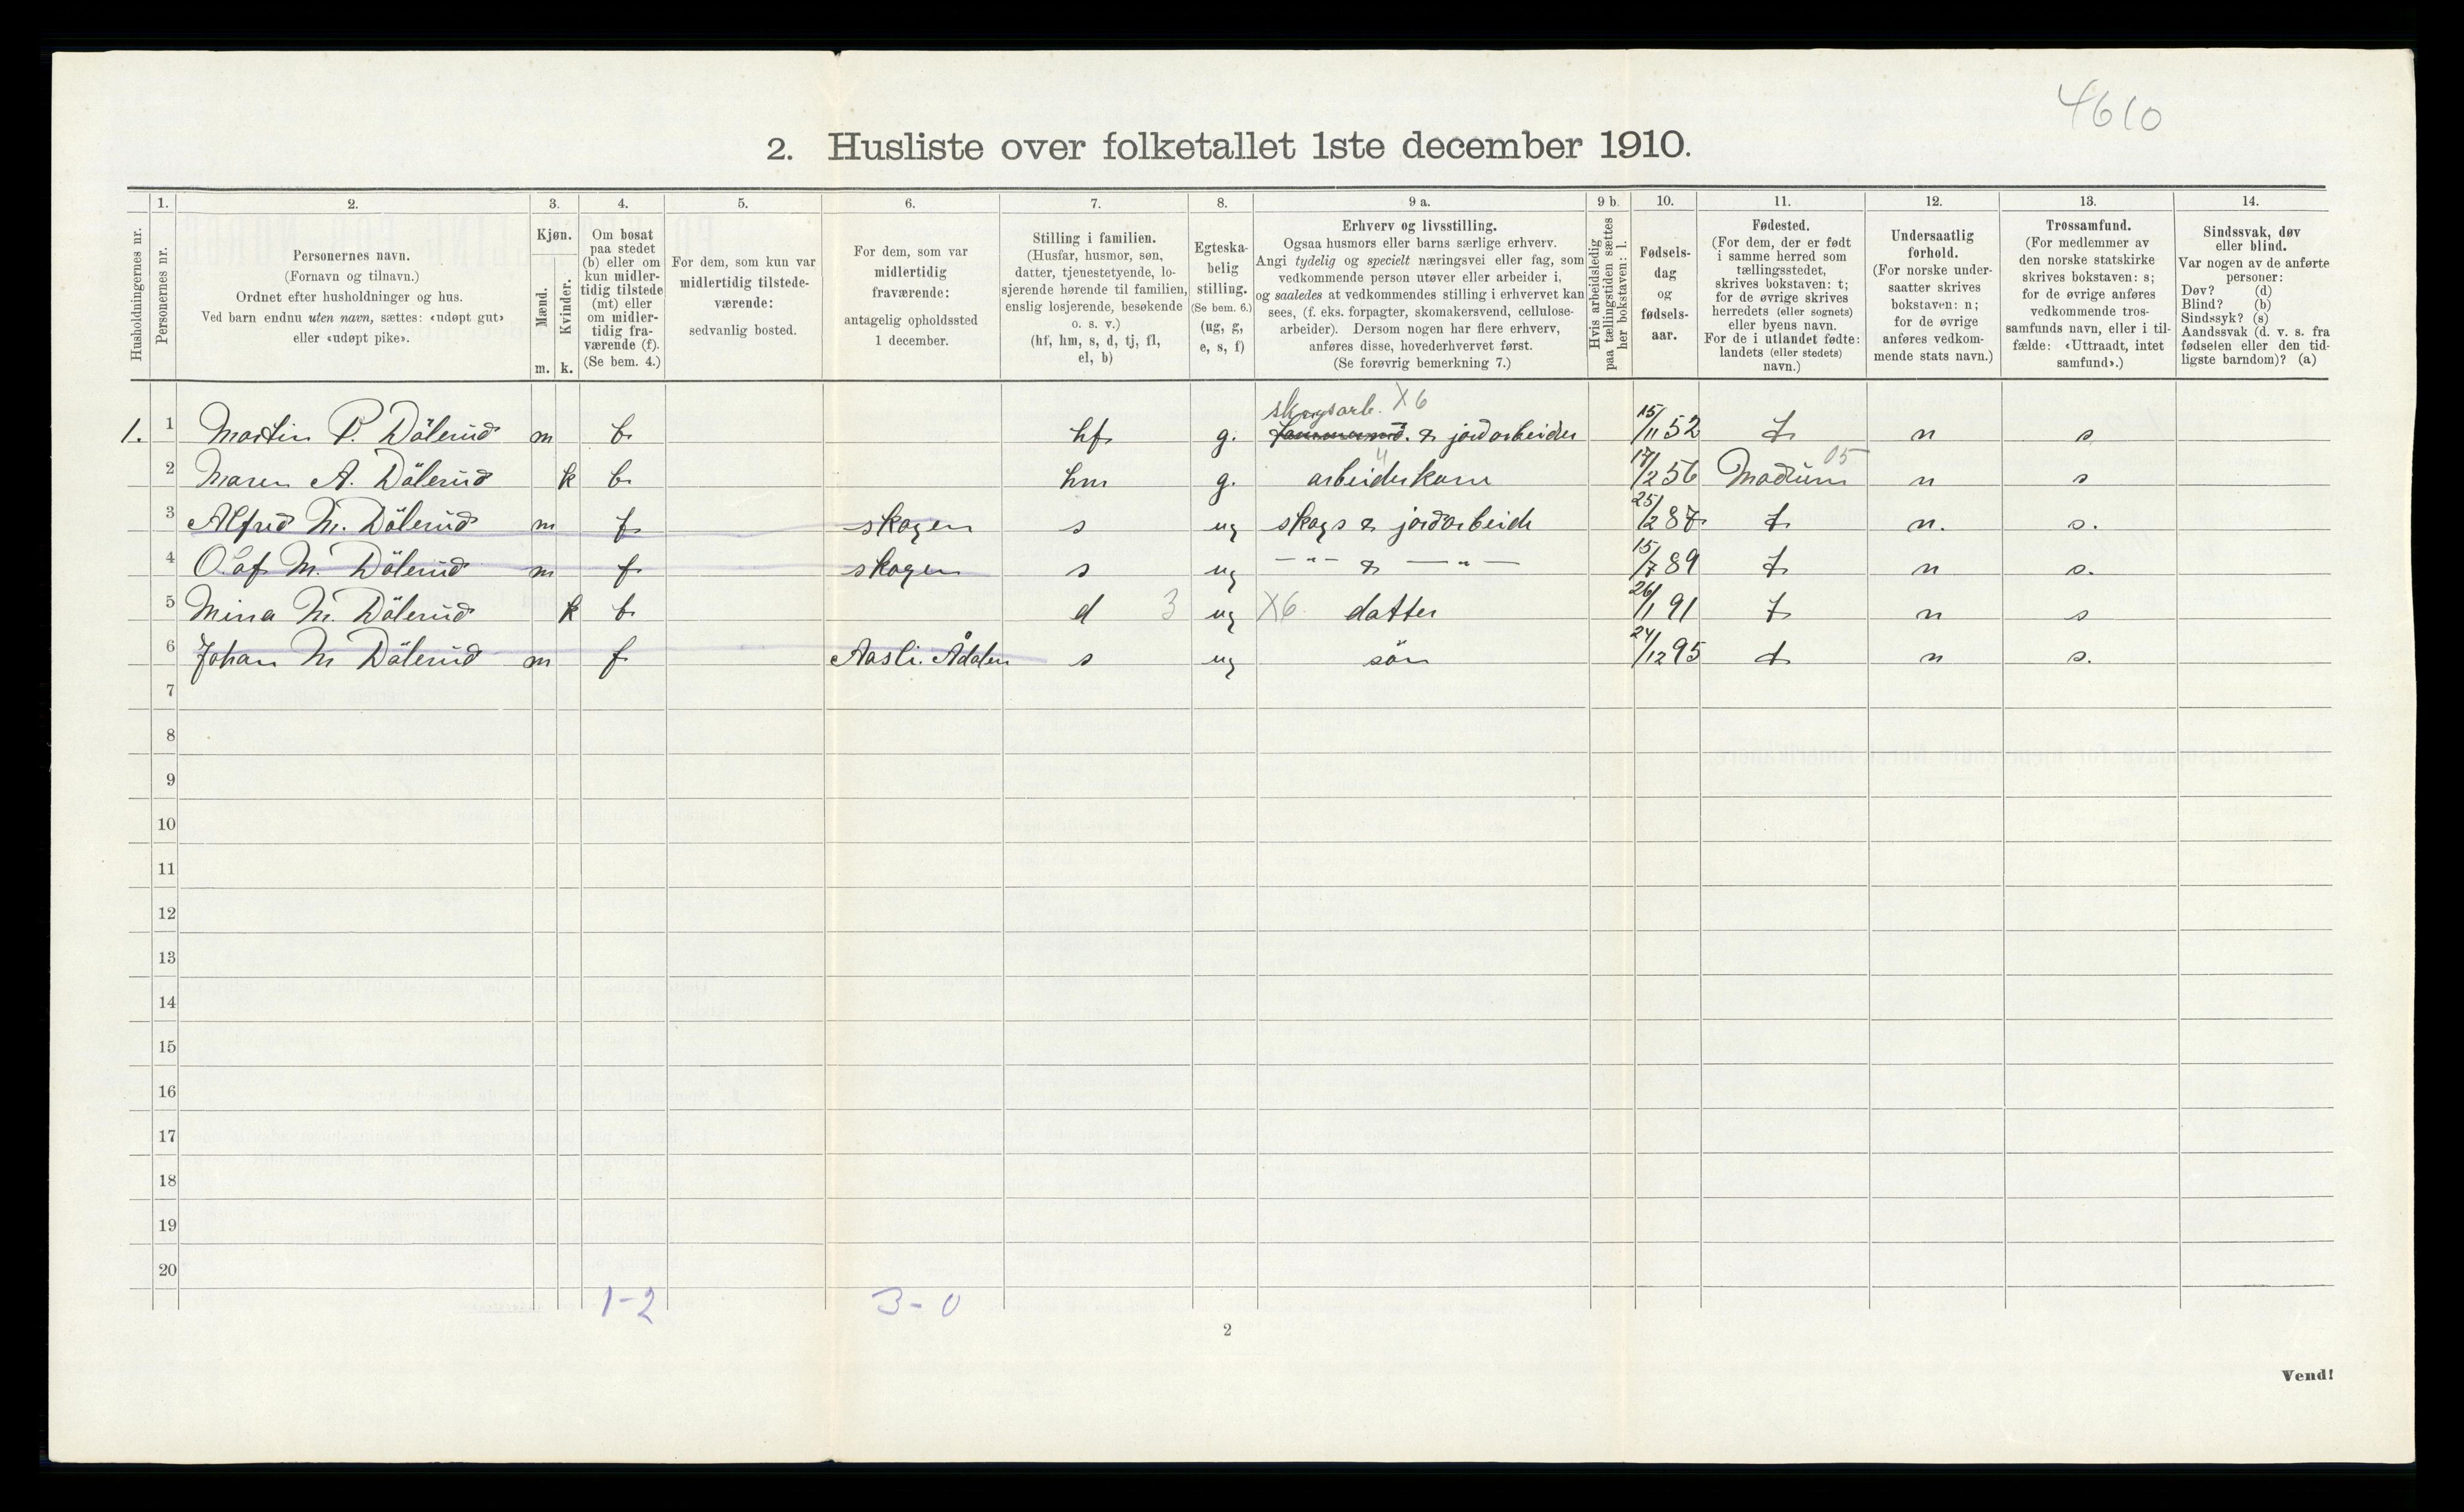 4610
2. Husliste over folketallet 1ste december 1910.
1. 2. 3. 4. 5. 6. 7. 8. 9 a. 9 b. 10. 11. 12. 13. 14.
Husholdningernes nr.
Personernes nr.
Personernes navn.
(Fornavn og tilnavn.)
Ordnet efter husholdninger og hus.
Ved barn endnu uten navn, sættes: «udøpt gut»
eller «udøpt pike».
Kjøn.
Mænd.
Kvinder.
m. k.
Om bosat
paa stedet
(b) eller om
kun midler-
tidig tilstede
(mt) eller
om midler-
tidig fra-
værende (f).
(Se bem. 4.)
For dem, som kun var
midlertidig tilstede-
værende:
sedvanlig bosted.
For dem, som var
midlertidig
fraværende:
antagelig opholdssted
1 december.
Stilling i familien.
(Husfar, husmor, søn,
datter, tjenestetyende, lo-
sjerende hørende til familien,
enslig losjerende, besøkende
o. s. v.)
(hf, hm, s, d, tj, fl,
el, b)
Egteska-
belig
stilling.
(Se bem. 6.)
(ug, g,
e, s, f)
Erhverv og livsstilling.
Ogsaa husmors eller barns særlige erhverv.
Angi tydelig og specielt næringsvei eller fag, som
vedkommende person utøver eller arbeider i,
og saaledes at vedkommendes stilling i erhvervet kan
sees, (f. eks. forpagter, skomakersvend, cellulose-
arbeider). Dersom nogen har flere erhverv,
anføres disse, hovederhvervet først.
(Se forøvrig bemerkning 7.)
Hvis arbeidsledig
paa tællingstiden sættes
her bokstaven: l.
Fødsels-
dag
og
fødsels-
aar.
Fødested.
(For dem, der er født
i samme herred som
tællingsstedet,
skrives bokstaven: t;
for de øvrige skrives
herredets (eller sognets)
eller byens navn.
For de i utlandet fødte:
landets (eller stedets)
navn.)
Undersaatlig
forhold.
(For norske under-
saatter skrives
bokstaven: n;
for de øvrige
anføres vedkom-
mende stats navn.)
Trossamfund.
(For medlemmer av
den norske statskirke
skrives bokstaven: s;
for de øvrige anføres
vedkommende tros-
samfunds navn, eller i til-
fælde: «Uttraadt, intet
samfund».)
Sindssvak, døv
eller blind.
Var nogen av de anførte
personer:
Døv? (d)
Blind? (b)
Sindssyk? (s)
Aandssvak (d. v. s. fra
fødselen eller den tid-
ligste barndom)? (a)
skogsarb. X6
1. 1 Martin P. Dölerud m b hf g. & jordarbeider 15/11 52 t n s
2 Maren A. Dölerud k b hm g. arbeiderkone 17/2 56 Modum 05 n s
3 Alfred M. Dölerud m f skogen s ug skogs & jordarbeide 25/2 87 t n. s.
4 Olaf M. Dölerud m f skogen s ug — " — & — " — 15/7 89 t n s.
5 Mina M. Dölerud k b d 3 ug X6 datter 26/1 91 t n s
6 Johan M Dölerud m f Aasli. Ådalen s ug sön 24/12 95 t n s.
7
8
9
10
11
12
13
14
15
16
17
18
19
20
1-2 3-0
2
Vend!